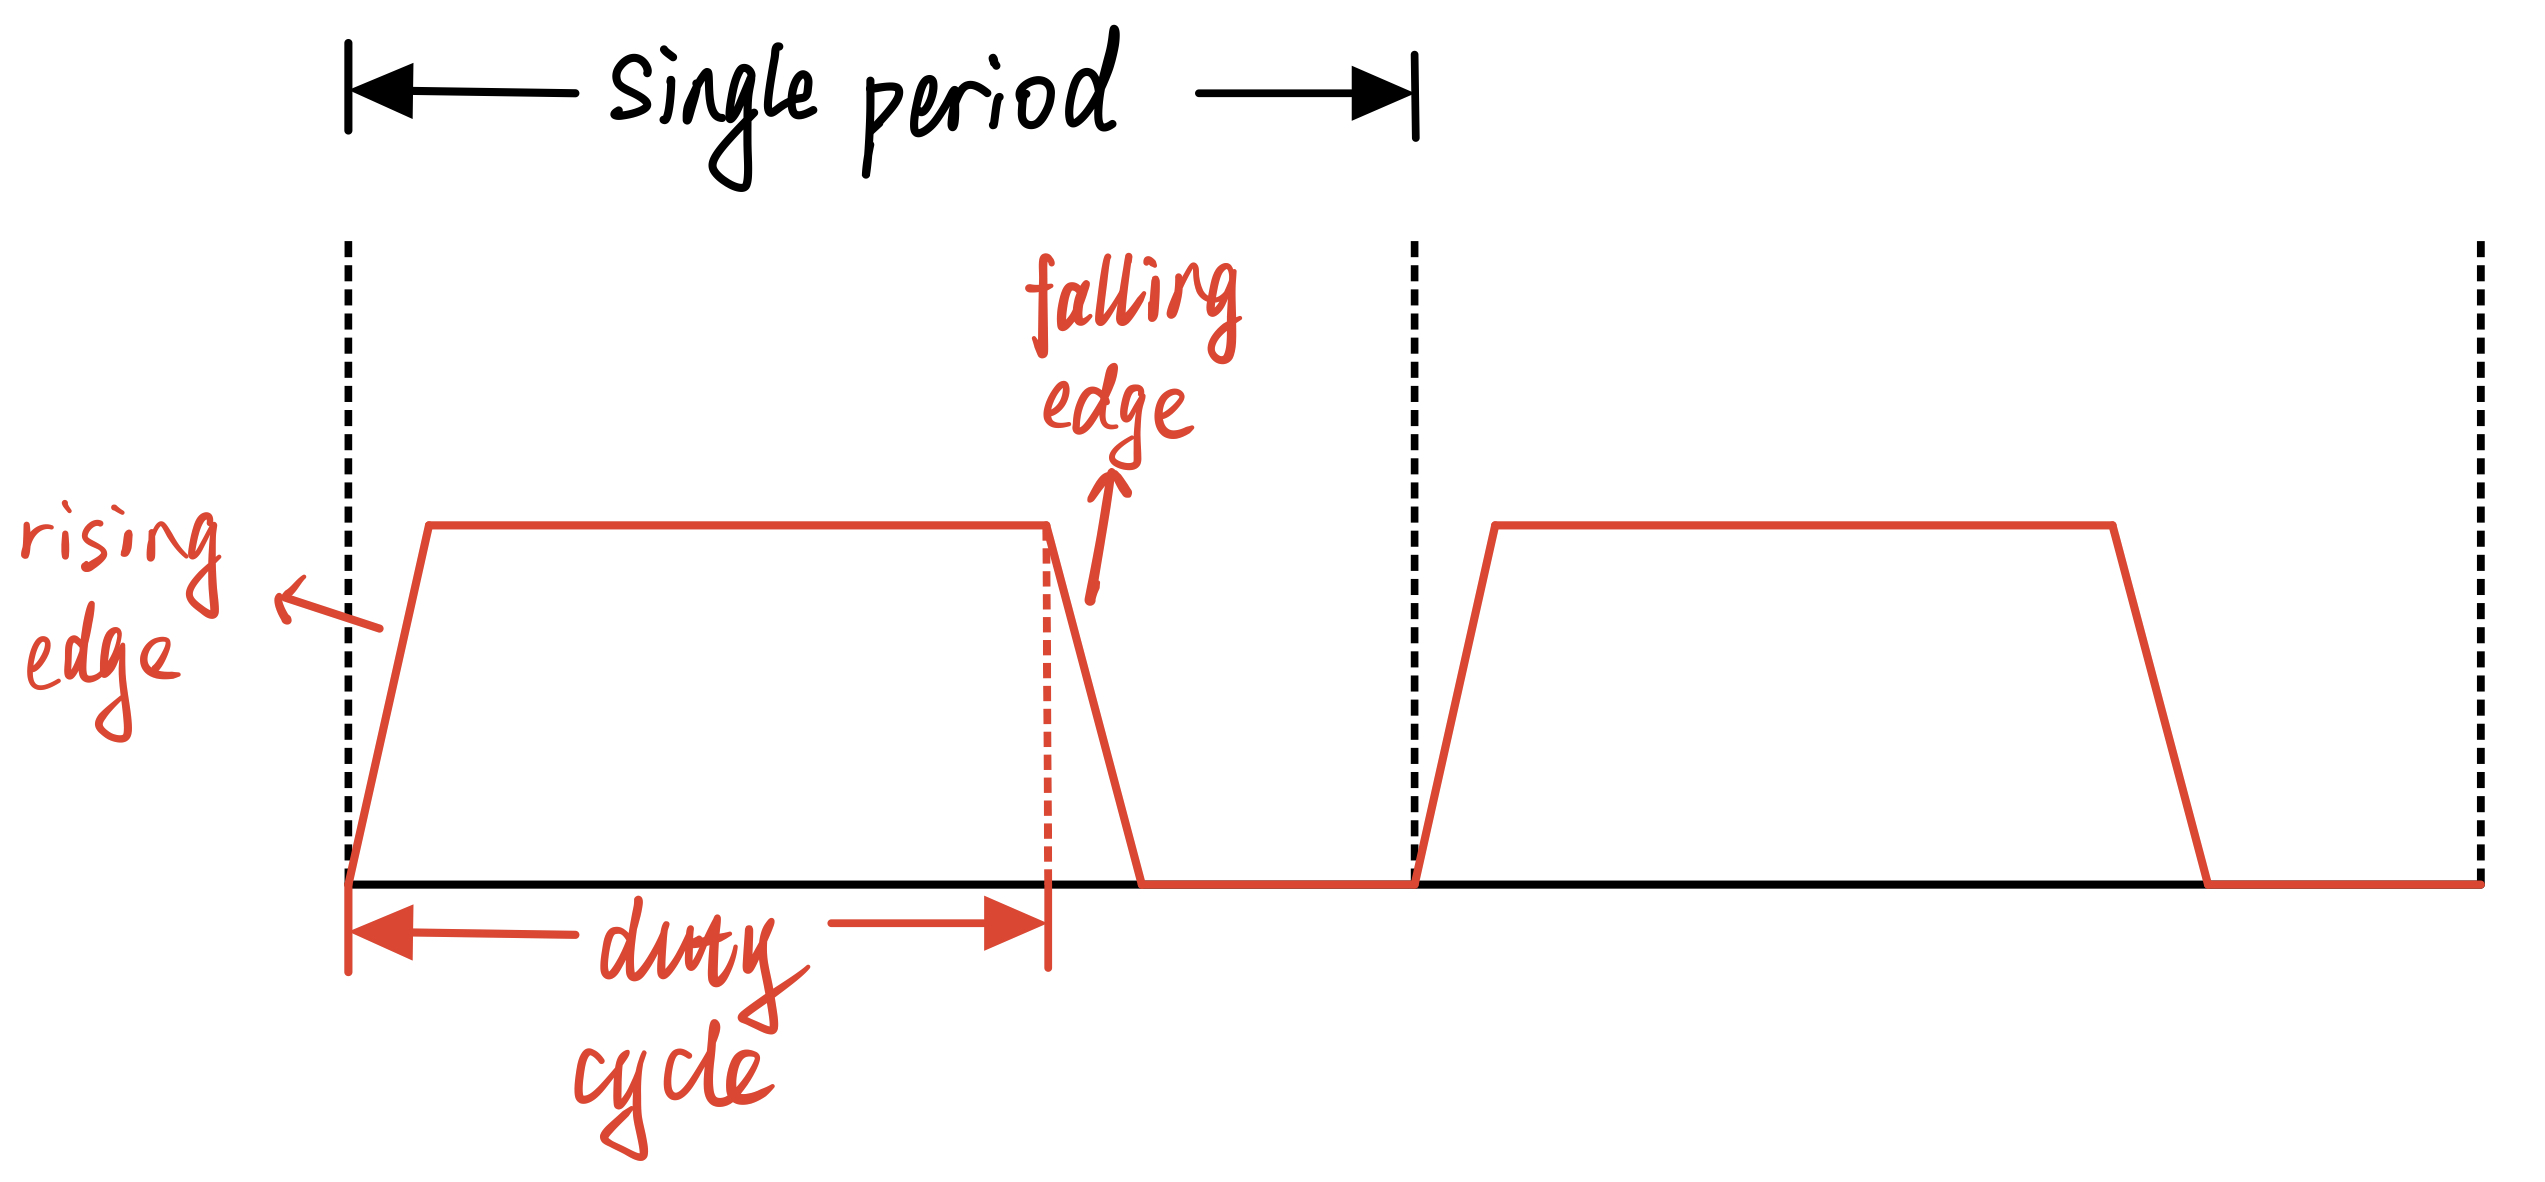 single period
falling
edge
rising
edge
duty
cycle